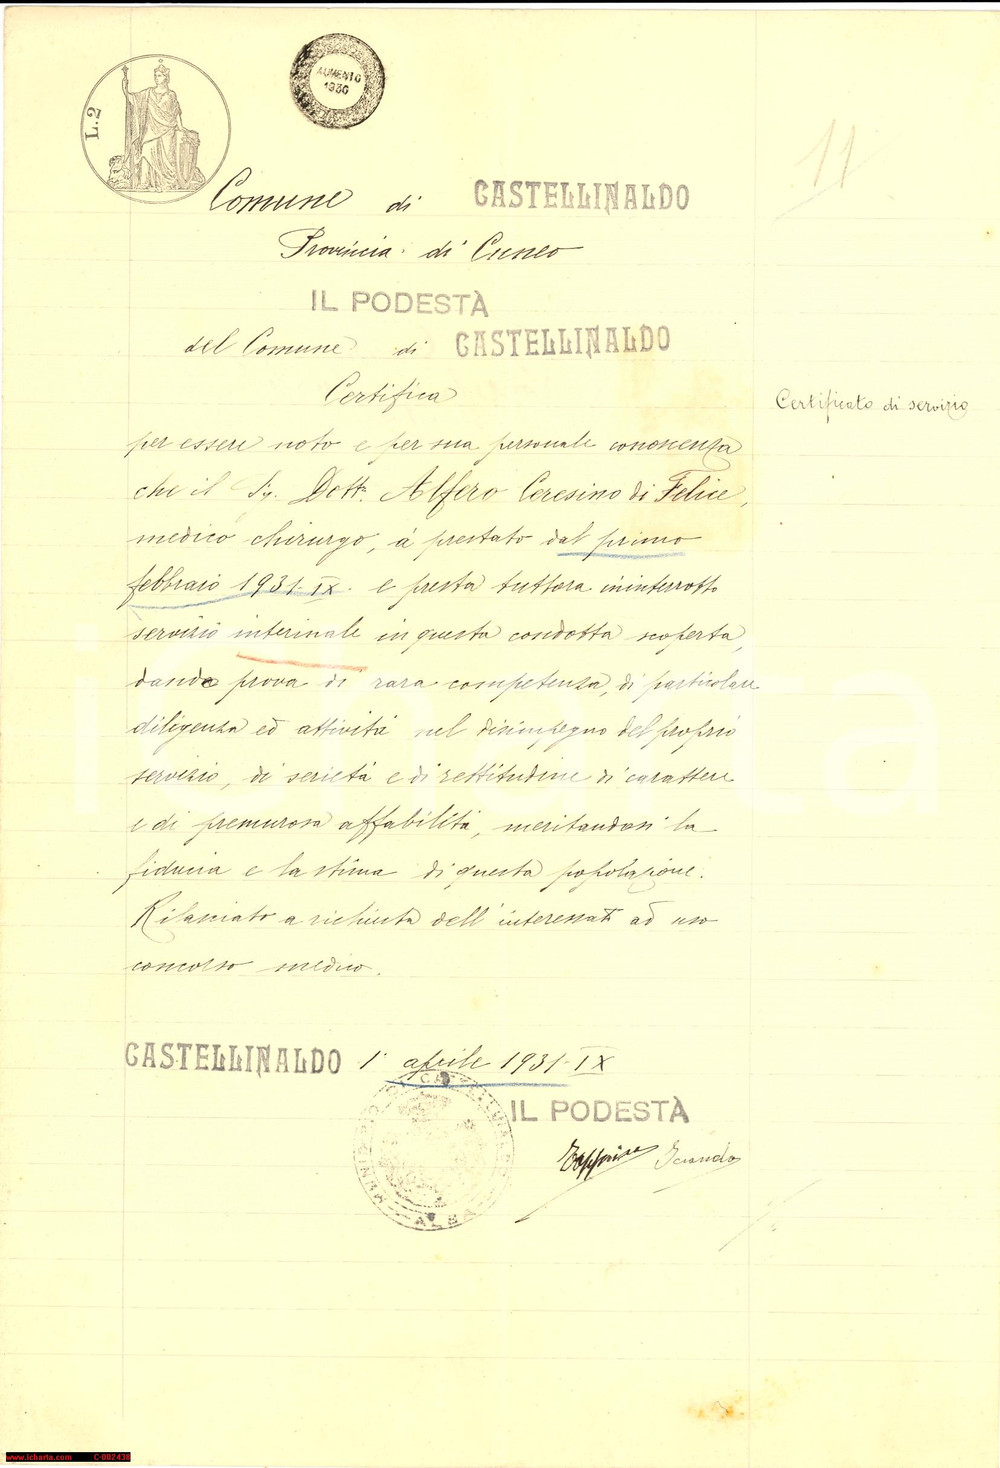 L.2
AUMENTO
1930
11
Comune di CASTELLINALDO
Provincia di Cuneo
IL PODESTÀ
del Comune di CASTELLINALDO
Certifica
Certificato di servizio
per essere noto e per sua personale conoscenza
che il Sig. Dott. Alfero Ceresino di Felice,
medico chirurgo, à prestato dal primo
febbraio 1931-IX. e presta tuttora ininterrotto
servizio interinale in questa condotta scoperta,
dando prova di rara competenza, di particolare
diligenza ed attività nel disimpegno del proprio
servizio, di serietà e di rettitudine di carattere
e di premurosa affabilità, meritandosi la
fiducia e la stima di questa popolazione.
Rilasciato a richiesta dell'interessato ad uso
concorso medico.
CASTELLINALDO 1° aprile 1931-IX
IL PODESTÀ
MUNICIPIO DI
ALBA
www.icharta.com C-002438